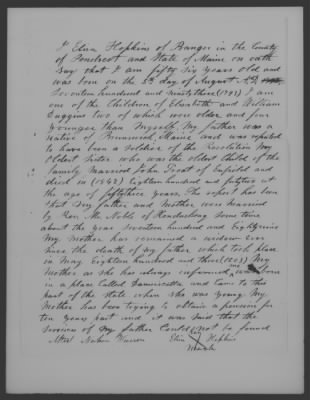 I Eliza Hopkins of Bangor in the County
of Penobscot and State of Maine on oath
say that I am fifty six years old and
was born on the day of August AD
Seventeen hundred and ninety three (1793) I am
one of the Children of Elizabeth and William
Duggins two of which were older and four
younger than myself. My father was a
native of Brunswick Maine and was reputed
to have been a soldier of the Revolution My
Oldest sister who was the oldest Child of the
family married John Treat of Enfield and
died in Eighteen hundred and
the age of years. The report has been
that my father and mother were married
by Rev. Mr. Noble of some time
about the year Seventeen hundred and Eighty
My Mother has remained a widow ever
since the death of my father, which took place
in May Eighteen hundred and three (1803) My
Mother as she has always informed me was born
in a place Called Damariscotta and Came to this
part of the State when she was young. My
Mother has been trying to obtain a pension for
ten years past and it was said that the
services of my father Could not be found
Attest Nathan Weston Eliza her X Hopkins
mark